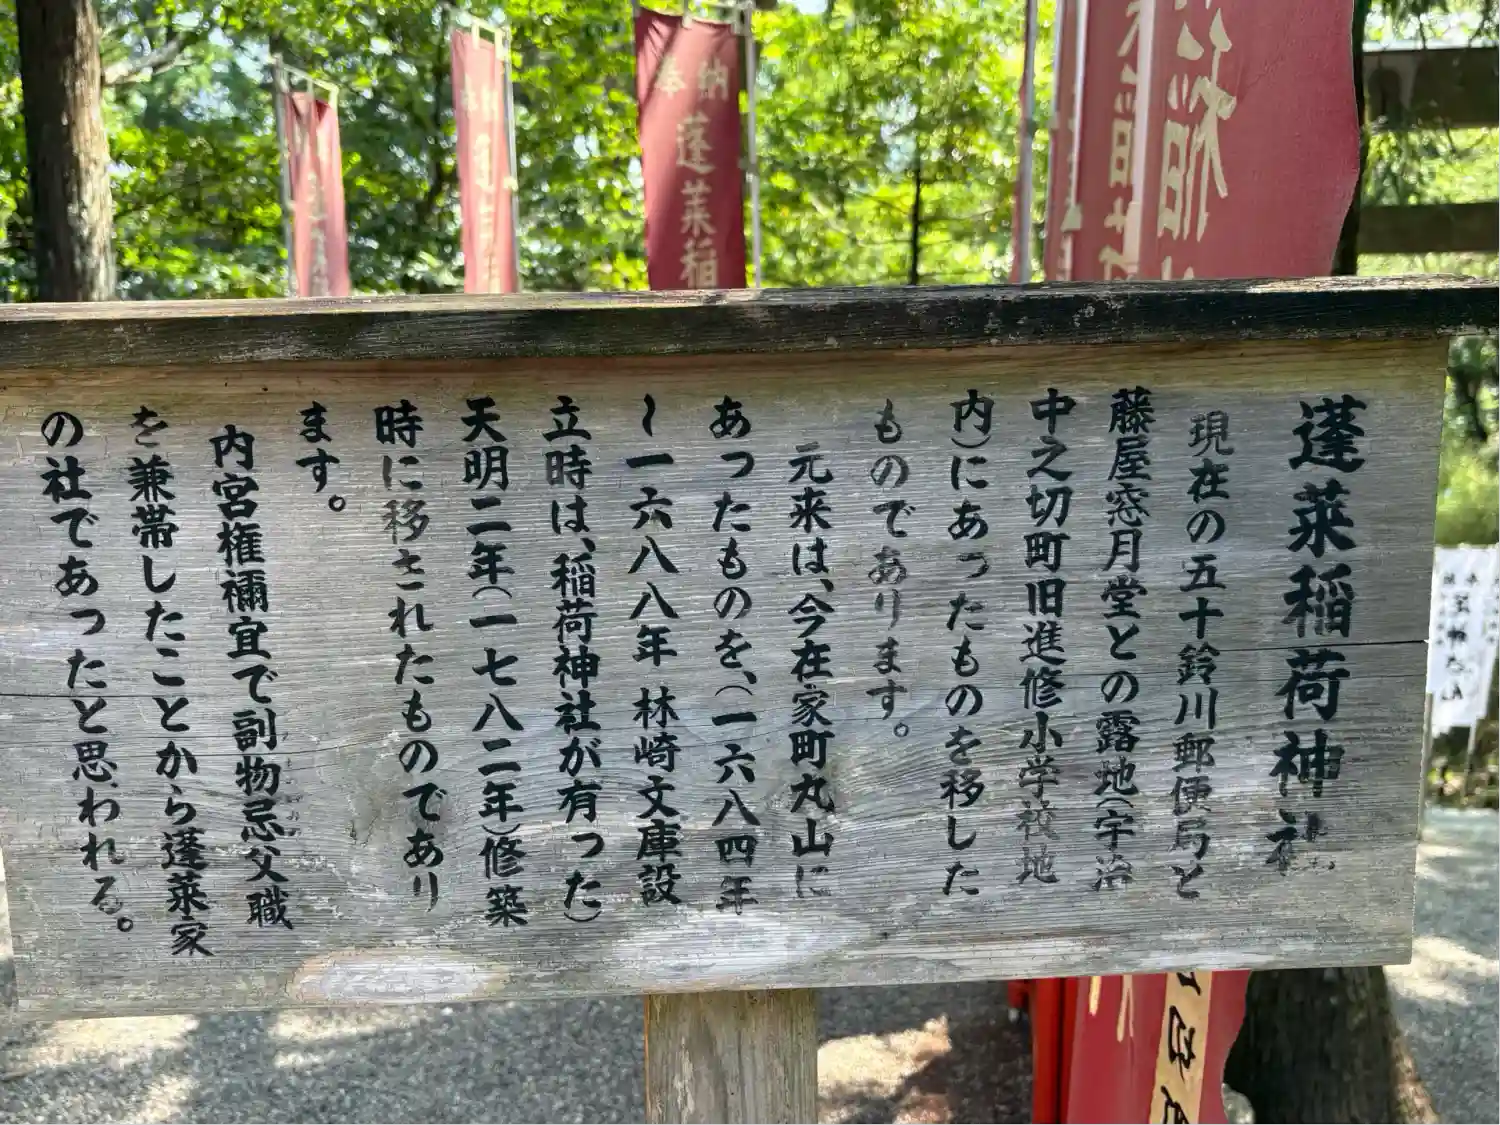 奉納
蓬莱稲
蓬莱稲荷神社
現在の五十鈴川郵便局と
藤屋窓月堂との露地(宇治
中之切町旧進修小学校地
内)にあったものを移した
ものであります。
元来は、今在家町丸山に
あったものを、(一六八四年
~一六八八年 林崎文庫設
立時は、稲荷神社が有った)
天明二年(一七八二年)修築
時に移されたものであり
ます。
内宮権禰宜で副物忌父職
を兼帯したことから蓬莱家
の社であったと思われる。